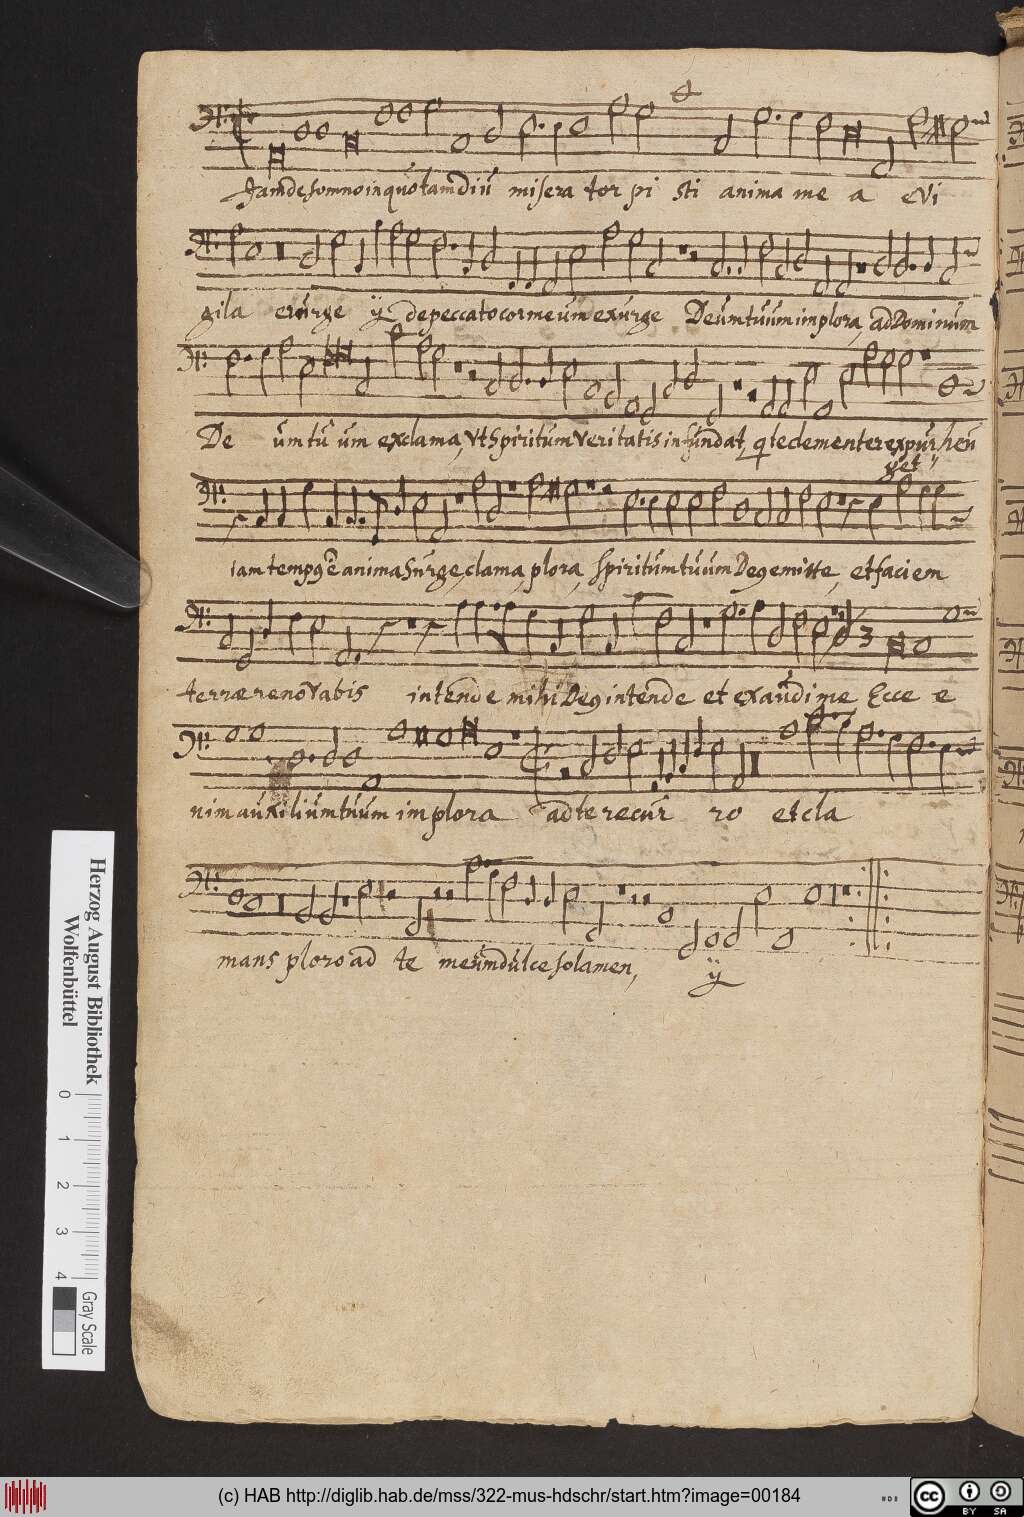 Iam de somno in quo tam diu misera tor pi sti anima me a evi
gila exurge ÿ de peccato cor meum exurge Deum tuum implora, ad Dominum
De um tu um exclama, Vt Spiritum Veritatis infundat, qi te clementer expur heu
get ÿ
iam tempq est anima Surge, clama, plora, Spiritum tuum Deq emitte, et faciem
terræ renoVabis intende mihi Deq intende et exaudi me Ecce e
nim auxilium tuum implora ad te recur ro et cla
mans ploro ad te meum dulce solamen, ÿ
Herzog August Bibliothek
Wolfenbüttel
0 1 2 3 4
Gray Scale
(c) HAB http://diglib.hab.de/mss/322-mus-hdschr/start.htm?image=00184
cc BY SA